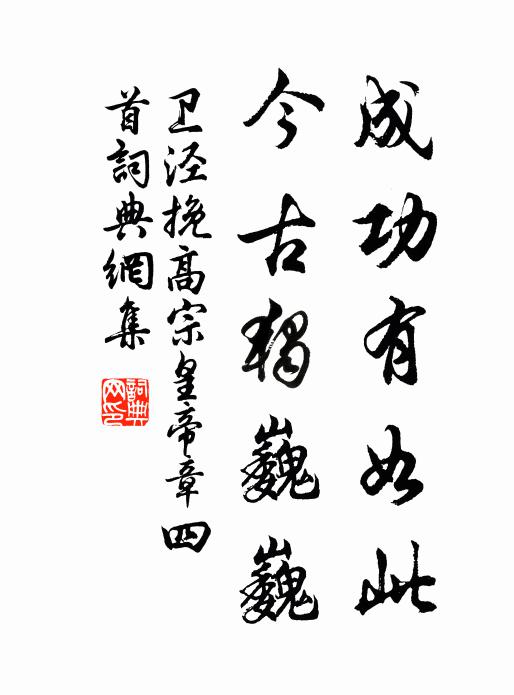 成功有如此
今古独巍巍
卫泾挽高宗皇帝章四
首詞典網集
詞典
网印